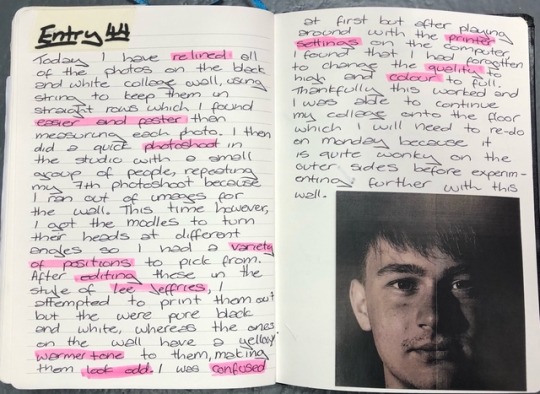 Entry 44
Today I have relined all
of the photos on the black
and white collage wall, using
string to keep them in
straight rows which I found
easier and faster then
measuring each photo. I then
did a quick photoshoot in
the studio with a small
group of people, repeating
my 7th photoshoot because
I ran out of images for
the wall. This time however,
I got the modles to turn
their heads at different
angles so I had a variety
of positions to pick from.
After editing these in the
style of lee Jeffries, I
attempted to print them out
but the were pure black
and white, whereas the ones
on the wall have a yellowy
warmer tone to them, making
them look odd. I was confused
at first but after playing
around with the printer
settings on the computer
I found that I had forgotten
to change the quality to
high and colour to full.
Thankfully this worked and
I was able to continue
my collage onto the floor
which I will need to re-do
on monday because it
is quite wonky on the
outer sides before experim-
enting further with this
wall.